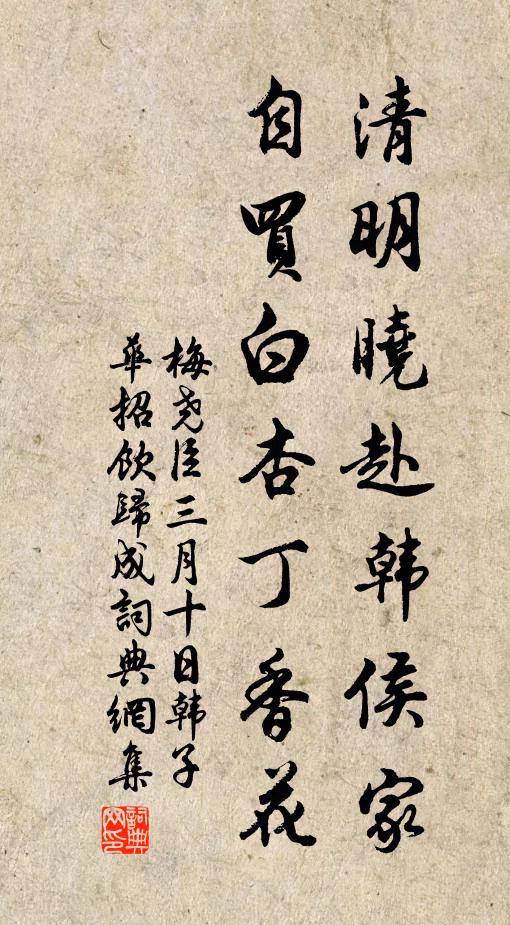 清明曉赴韩侯家
自買白杏丁香花
梅尧臣三月十日韩子
華招飲歸成詞典網集
詞典
网印